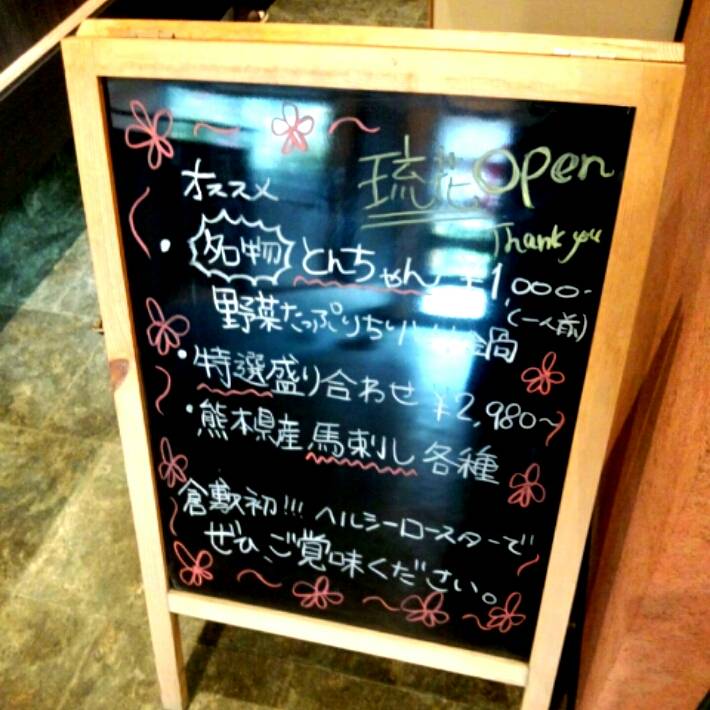 琉花 Open
Thank you
オススメ
・名物 とんちゃん ¥1,000-
(一人前)
野菜たっぷりちりとり鍋
・特選盛り合わせ ¥2,980〜
・熊木県産 馬刺し 各種
倉敷初!!! ヘルシーロースターで
ぜひ、ご覚味ください。